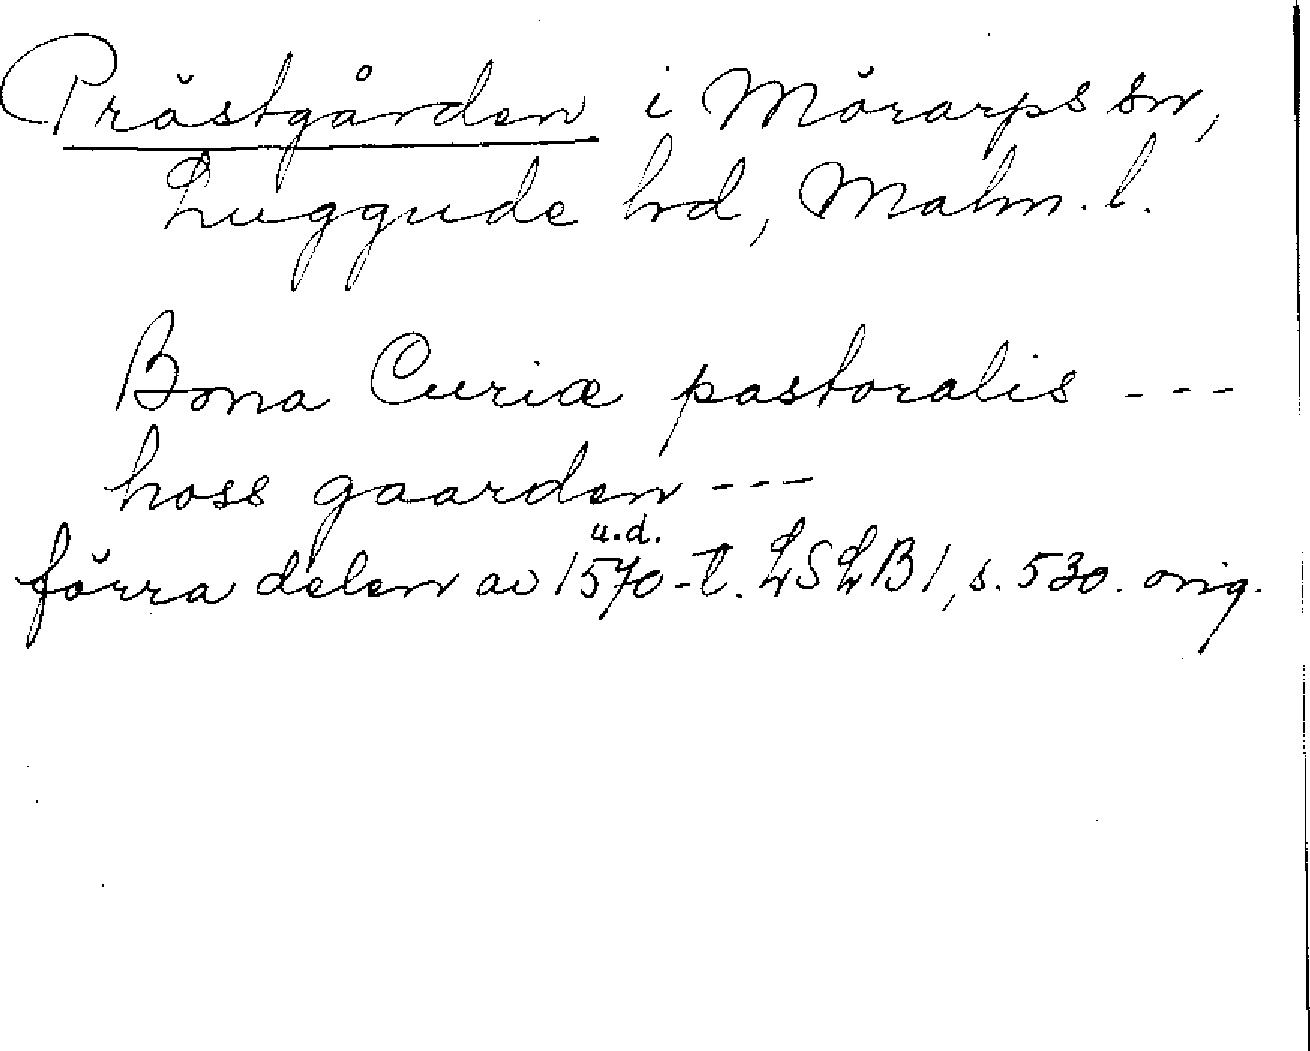 Prästgården i Mörarps sn,
Luggude hd, Malm. l.
Bona Curiæ pastoralis ---
hoss gaarden ---
u.d.
förra delen av 1570-t. LSLB 1, s. 530. orig.